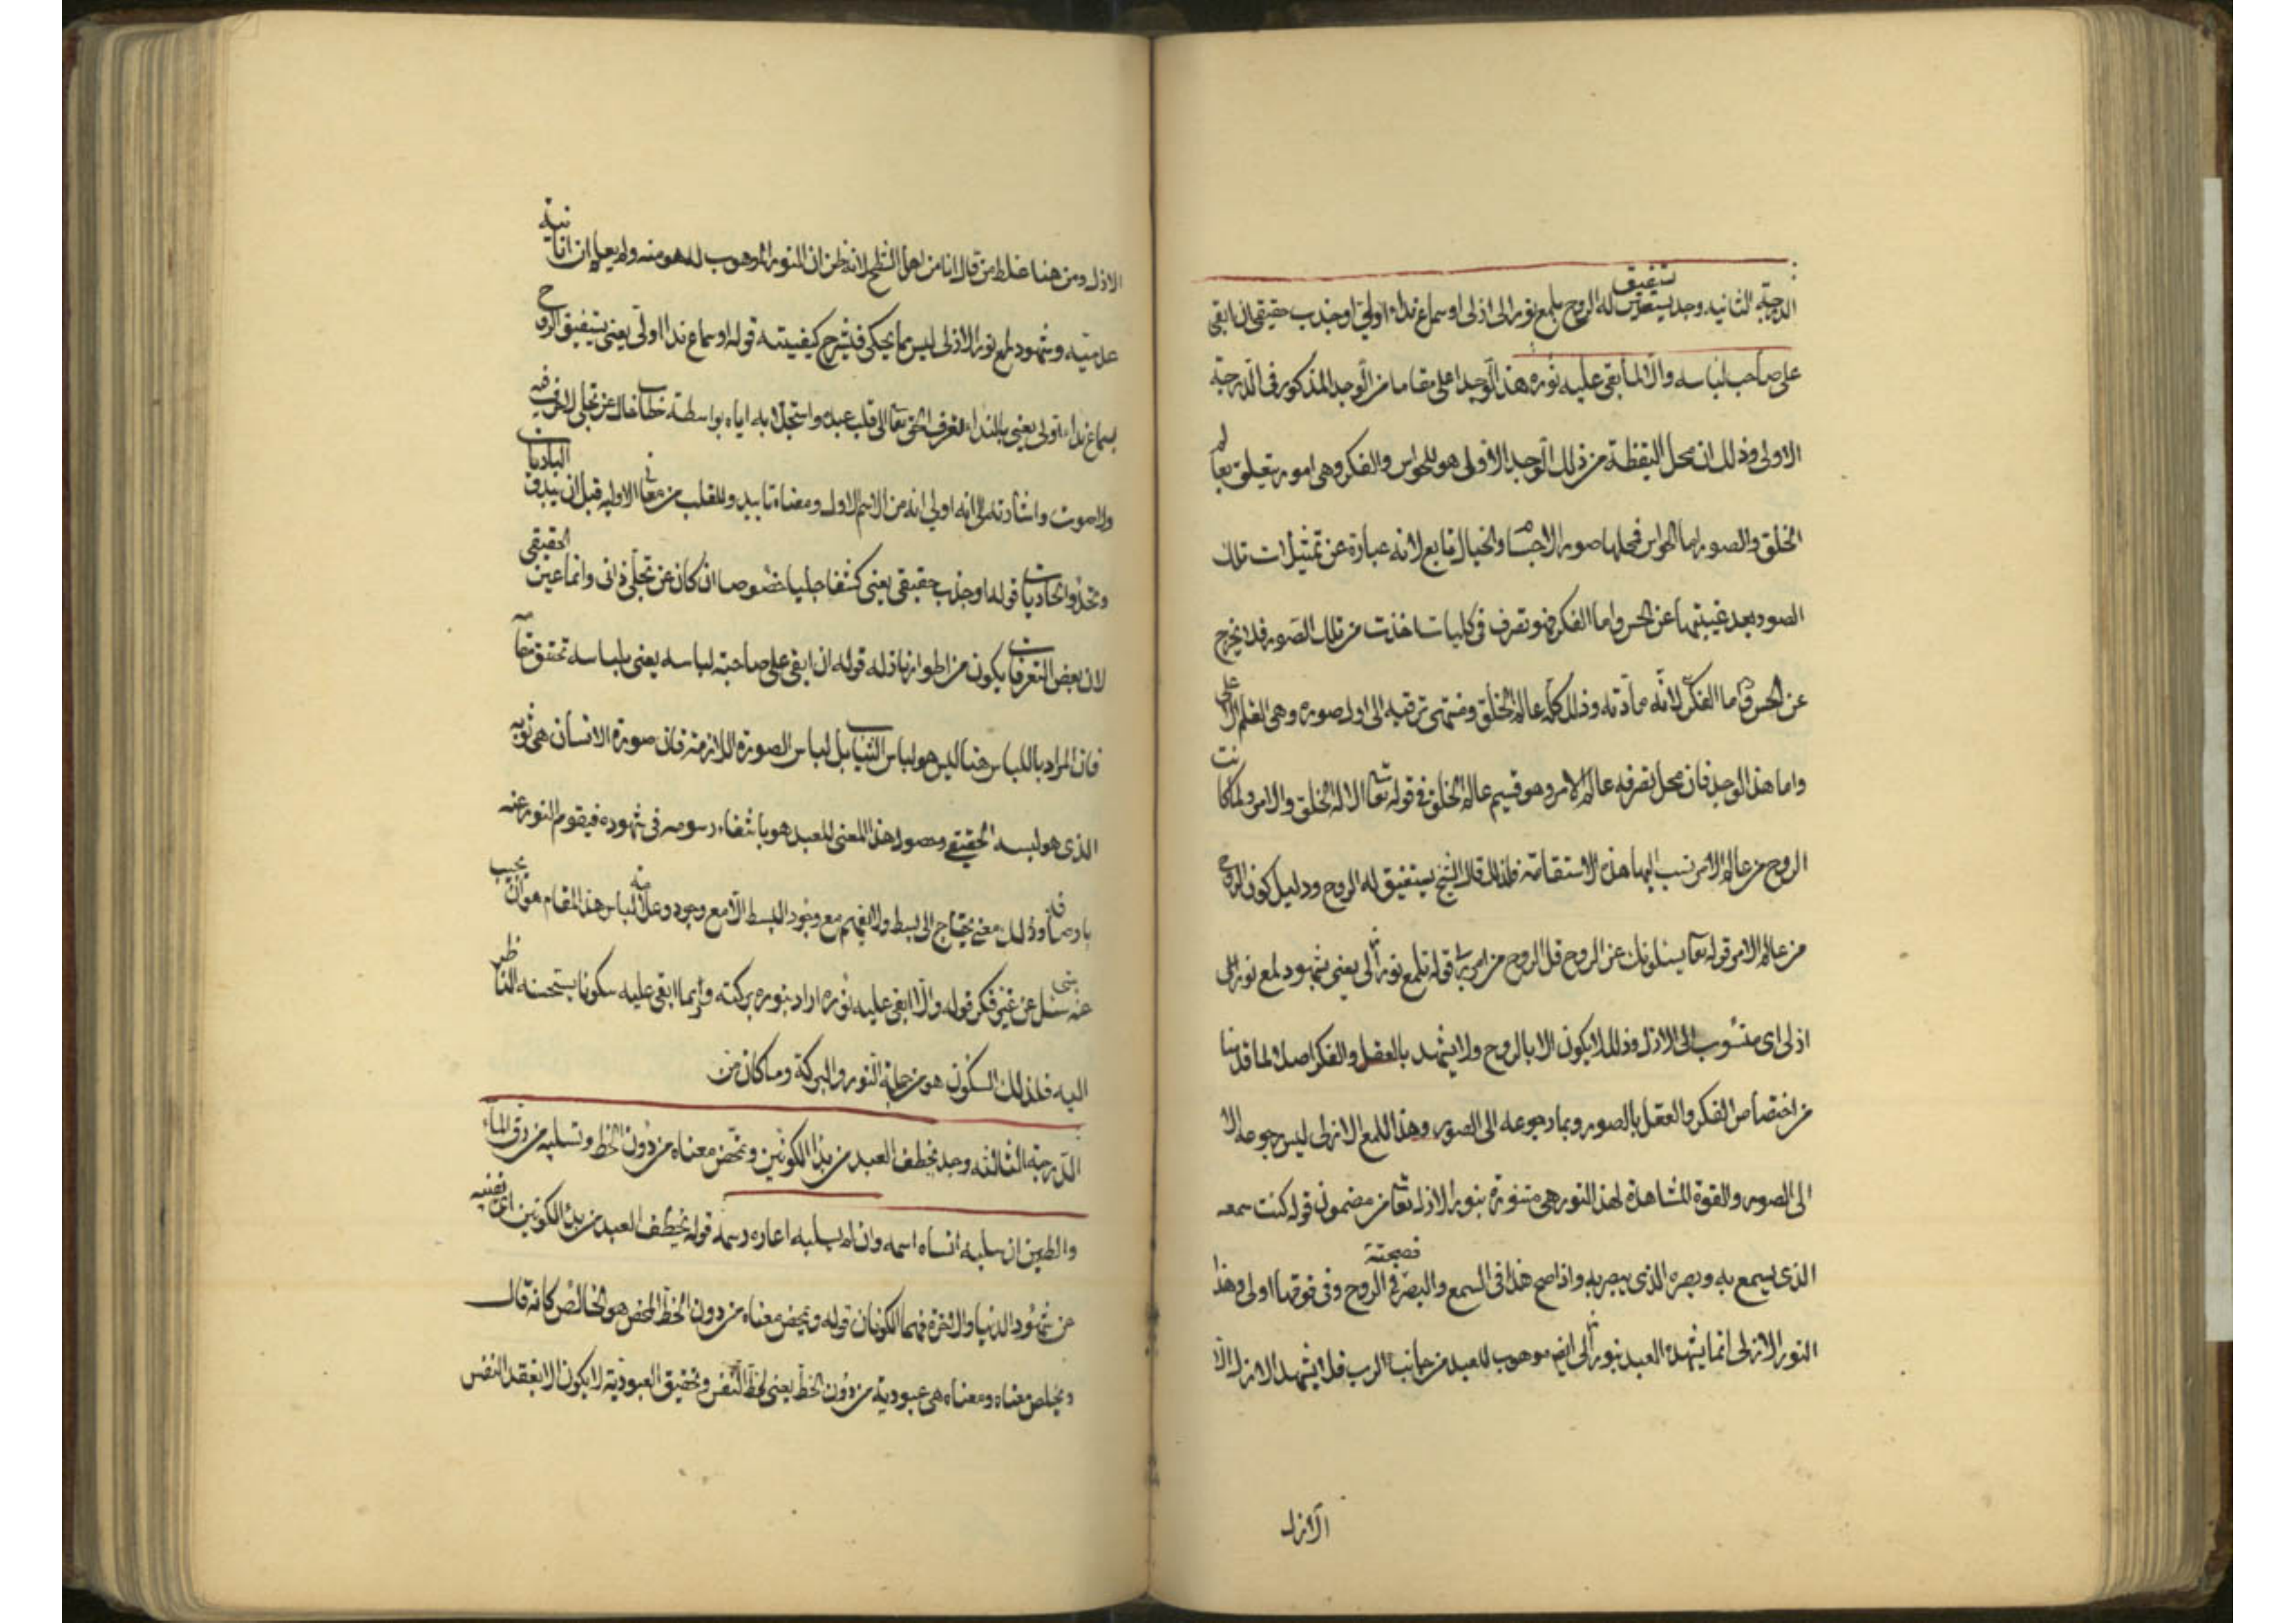 الدرجة الثانية وجد يستفيق له الروح بلمع نور ازلى او سماع نداء اولى او جذب حقيقى ان ابقى
على صاحبه لباسه والا لما بقى عليه نوره هذا الوجد اعلى مقاما من الوجد المذكور فى الدرجة
الاولى وذلك ان محل اليقظة من ذلك الوجد الاولى هو للحواس والفكر وهى امور تتعلق بعالم
الخلق والصور اما الحواس فمحلها صور الاجسام والخيال تابع لانه عبارة عن تمثيلات تلك
الصور بعد غيبتها عن الحس واما الفكر فهو تصرف فى كليات اخذت من تلك الصور فلا يخرج
عن الحس واما الفكر لانه مادته وذلك كله عالم الخلق ومنتهى ترقيه الى اول صوره وهى القلم الاعلى
واما هذا الوجد فان محل تصرفه عالم الامر وهو قسيم عالم الخلق فى قوله تعالى الا له الخلق والامر ولما كانت
الروح من عالم الامر نسب اليها هذه الاستقامة فلذلك قال الشيخ يستفيق له الروح ودليل كون الروح
من عالم الامر قوله تعالى يسئلونك عن الروح قل الروح من امر ربى قوله بلمع نور ازلى يعنى بشهود لمع نور ازلى
ازلى اى منسوب الى الازل وذلك لا يكون الا بالروح ولا يشهد بالعقل والفكر اصلا لما قدمنا
من اختصاص الفكر والعقل بالصور وبما رجوعه الى الصور وهذا اللمع الازلى ليس رجوعه الا
الى الصور والقوة المشاهدة لهذا النور هى متنورة بنور الازل تعالى من مضمون قوله كنت سمعه
الذى يسمع به وبصره الذى يبصر به واذا صح هذا فى السمع والبصر فصحته فى الروح وفى فوقها اولى وهذا
النور الازلى انما يشهده العبد بنور ازلى ايضا موهوب للعبد من جانب الرب فلا يشهد الازل الا
الازل
الازل ومن هنا غلط من قال انا من اهل الشطح لانه ظن ان النور الموهوب له هو منه ولم يعلم ان انانيته
عدميته وشهود لمع نور الازلى ليس مما يحكى فيشرح كيفيته قوله او سماع ندا اولى يعنى يستفيق الروح
بسماع نداء اولى يعنى بالنداء تعرف الحق تعالى الى قلب عبده واستجلابه اياه بواسطة خطاب خال عن تجلى لا حرف فيه
ولا صوت واشارته الى انه اولى انه من الاسم الاول ومعناه تاييد وللقلب من معانى الاوليه قبل ان تبدو البادئات
وتحد واتحاديات قوله او جذب حقيقى يعنى كشفا جليا خصوصا ان كان عن تجلى ذاتى وانما عين الحقيقى
لان بعض التعرفات يكون من اطوار نازله قوله ان ابقى على صاحبه لباسه يعنى بلباسه تحقق مقامه
فان المراد باللباس هنا ليس هو لباس الثياب بل لباس الصورة اللازمة فان صورة الانسان هى ثوبه
الذى هو لبسه الحقيقى وحصول هذا المعنى للعبد هو بانتفاء رسومه فى شهوده فيقوم النور عنه
باوصافه وذلك معنى يحتاج الى بسط ولا يفهم مع وجود البسط الا مع وجود وعلامة لباس هذا المقام هو ان يجيب
عنه سئل عن شئ غير فكر قوله والا ابقى عليه نوره اراد بنوره بركته وانما ابقى عليه سكونا يستحسنه الناظر
اليه فلذلك السكون هو من جملة النور والبركة وما كان من
الدرجة الثالثه وجد يخطف العبد من يد الكونين ويمحض معناه من دون الحظ وتسلبه من رق الماء
والطين ان سلبه انساه اسمه وان لم يسلبه اعاره رسمه قوله يخطف العبد من يد الكونين اى يغنيه
من شهود الدنيا والاخرة فهما الكونان قوله ويمحض معناه من دون الحظ المحض هو الخالص كانه قال
ويخلص معناه ومعناه هى عبوديته من دون الحظ يعنى لحظ النفس وتحقيق العبودية لا يكون الا بفقد النفس